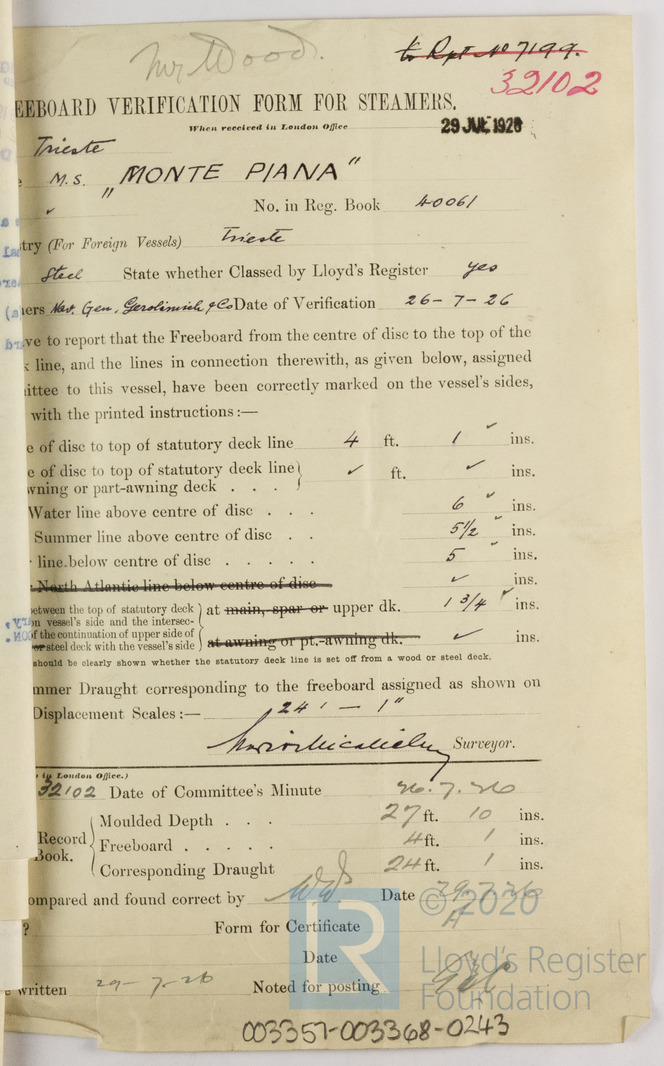 Mr Wood.
to Rpt No 7199.
32102
EEBOARD VERIFICATION FORM FOR STEAMERS.
When received in London Office 29 JUL 1926
Trieste
M.S. "MONTE PIANA"
No. in Reg. Book 40061
try (For Foreign Vessels) Trieste
Steel State whether Classed by Lloyd's Register yes
ners Nav. Gen. Gerolimich & Co Date of Verification 26-7-26
ve to report that the Freeboard from the centre of disc to the top of the
k line, and the lines in connection therewith, as given below, assigned
ittee to this vessel, have been correctly marked on the vessel's sides,
with the printed instructions:—
e of disc to top of statutory deck line 4 ft. 1 ins.
e of disc to top of statutory deck line
wning or part-awning deck . . . ✓ ft. ✓ ins.
Water line above centre of disc . . . 6 ins.
Summer line above centre of disc . . 5 1/2 ins.
line below centre of disc . . . . . 5 ins.
North Atlantic line below centre of disc ✓ ins.
between the top of statutory deck
on vessel's side and the intersec- at main, spar or upper dk. 1 3/4 ins.
of the continuation of upper side of
or steel deck with the vessel's side at awning or pt.-awning dk. ✓ ins.
should be clearly shown whether the statutory deck line is set off from a wood or steel deck.
mmer Draught corresponding to the freeboard assigned as shown on
Displacement Scales:— 24' — 1"
Surveyor.
in London Office.)
32102 Date of Committee's Minute 26.7.26
Moulded Depth . . . 27 ft. 10 ins.
Record Book. Freeboard . . . . . 4 ft. 1 ins.
Corresponding Draught 24 ft. 1 ins.
ompared and found correct by Date 29.7.26
? Form for Certificate A
Date
written 29-7-26 Noted for posting
© 2020
Lloyd's Register
Foundation
LR
003357-003368-0243